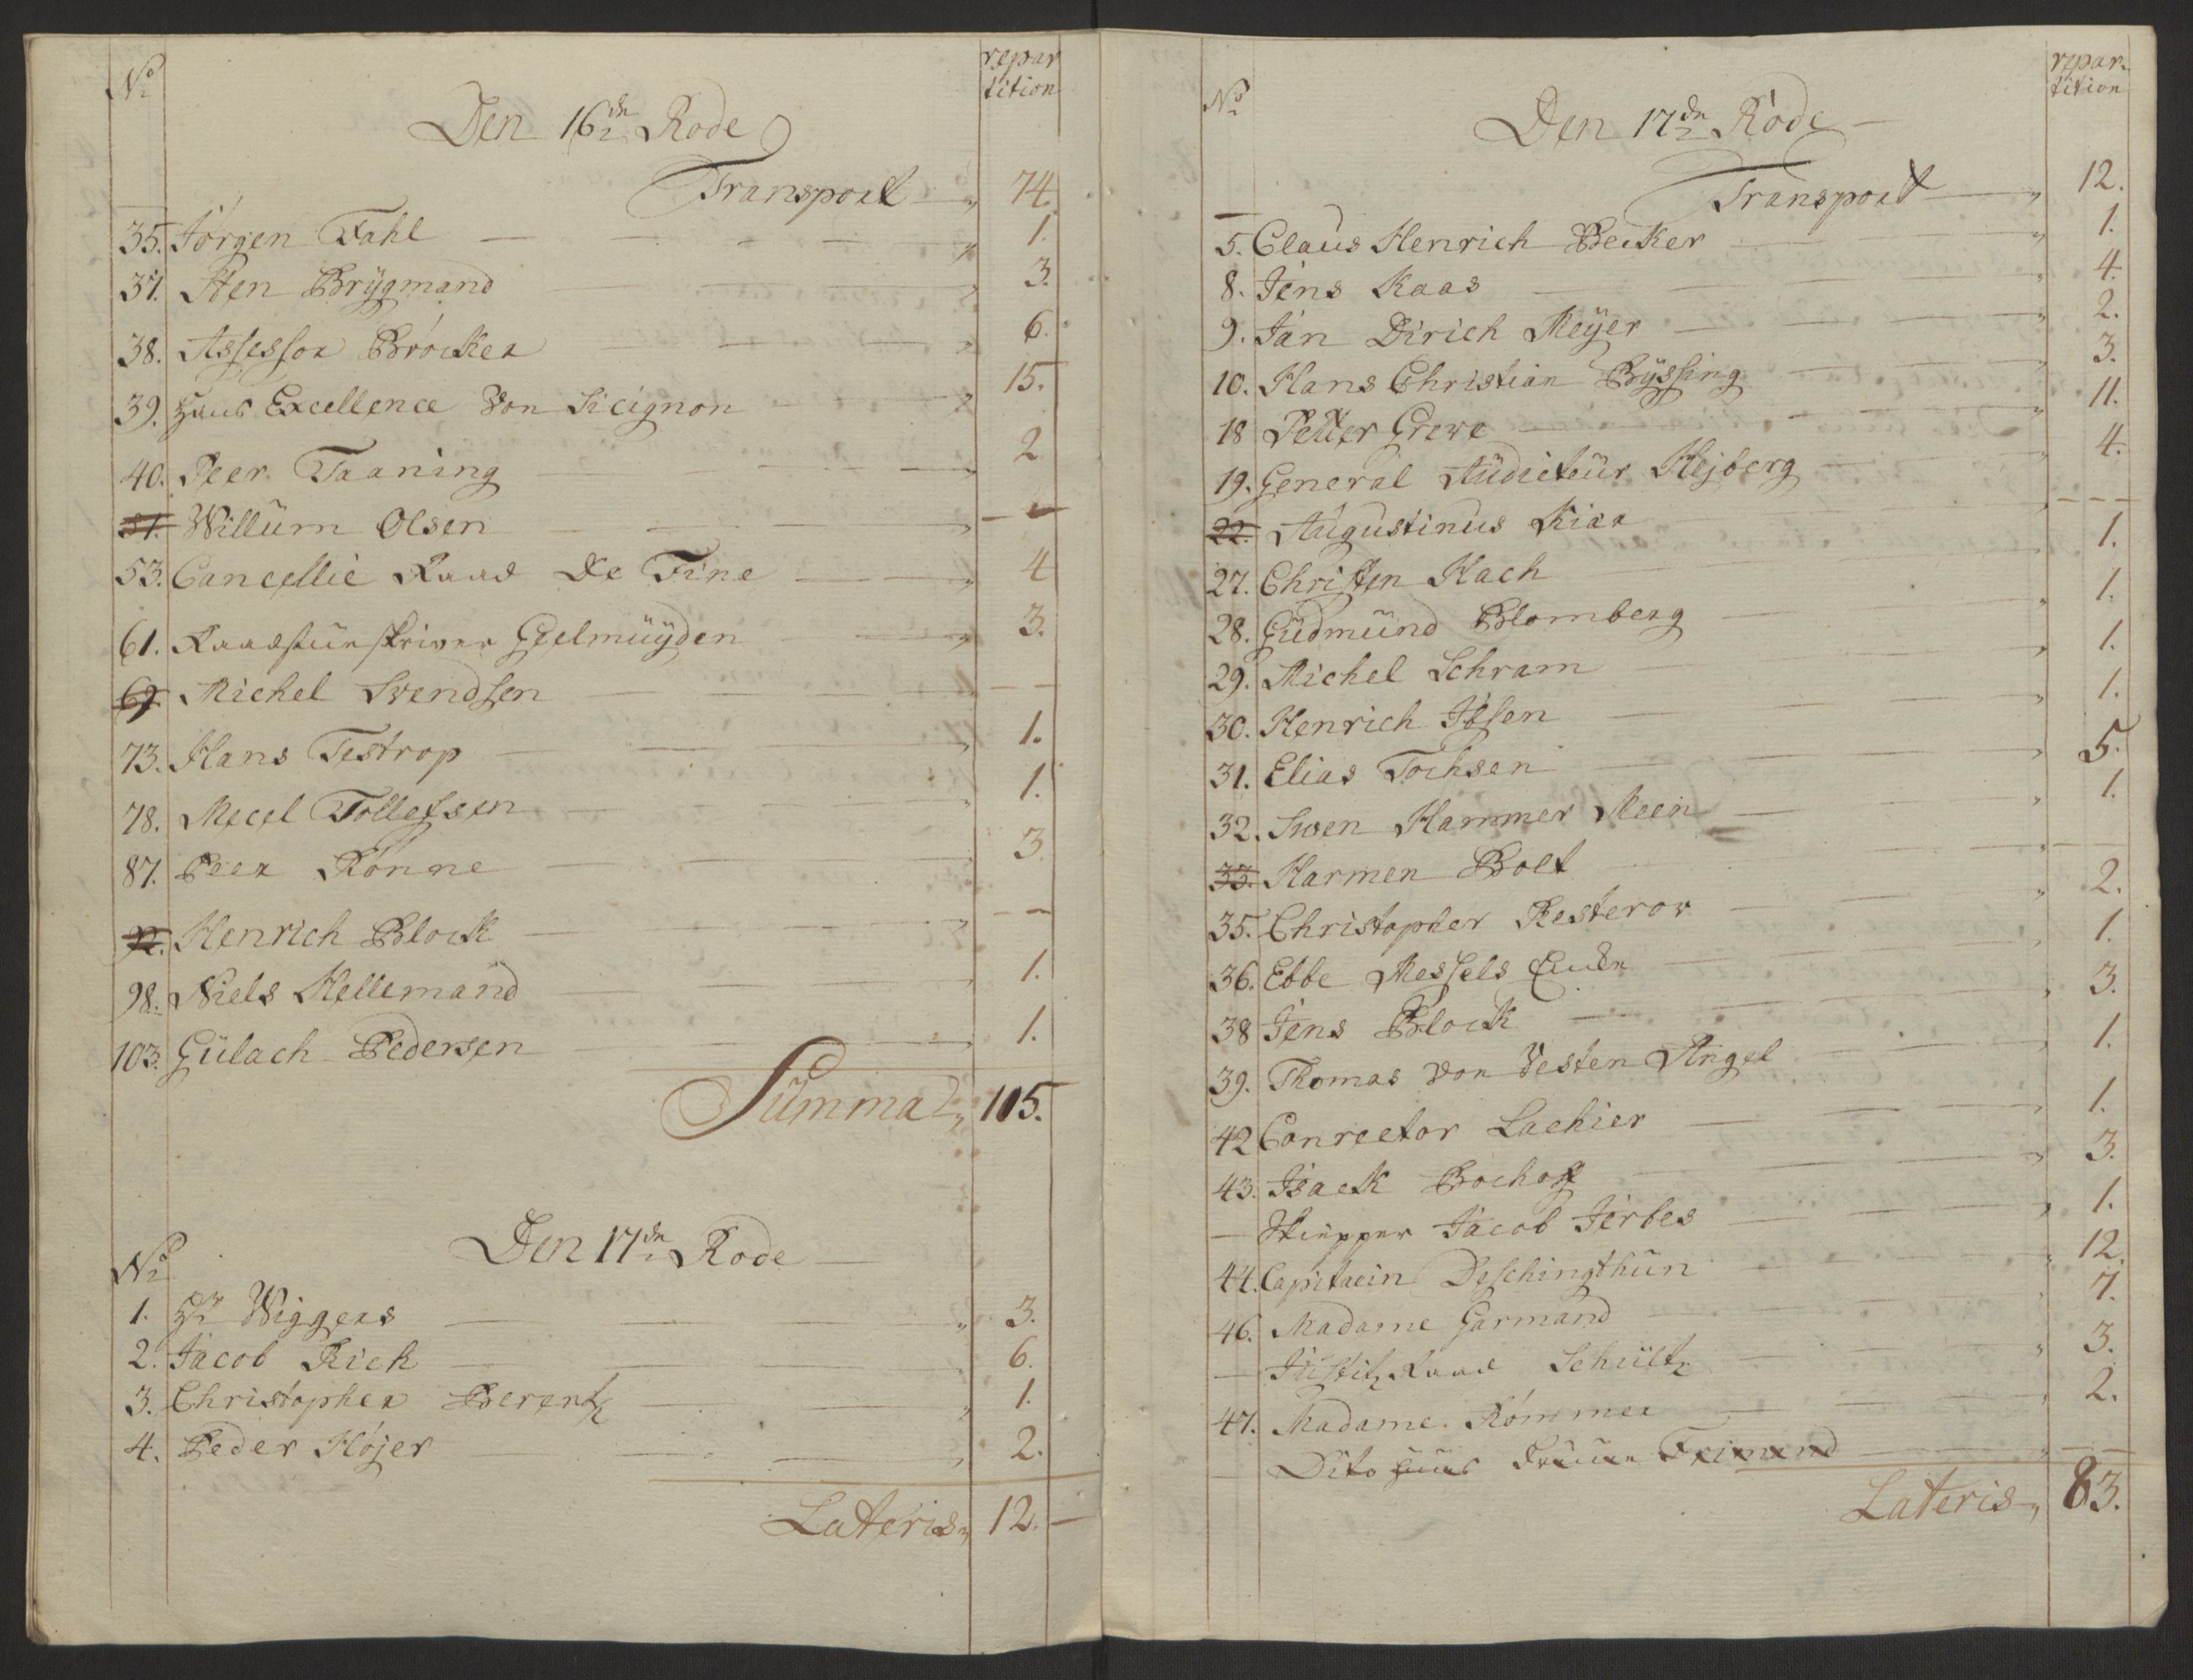 No
repar
tition
Den 16de Rode
Transport " 74.
35. Jørgen Fahl " 1.
37. Sten Brÿgmand " 3.
38. Assessor Bröcker " 6.
39. Hans Excellence Von Sicignon " 15.
40. Peer Taaning " 2
51. Willum Olsen " —
53. Cancellie Raad De Fine " 4
61. Raadstueskriver Geelmüÿden " 3.
69. Michel Svendsen — —
73. Hans Testrop " 1.
78. Mecel Tollefsen " 1.
87. Peer Rönne " 3.
92. Henrich Block " — —
98. Niels Kellemand " 1.
103. Gülach Pedersen " 1.
Summa " 105.
Den 17de Rode
No
1. Hr Wiggers " 3.
2. Jacob Rich " 6.
3. Christopher Berentz " 1.
4. Peder Höjer " 2.
Lateris " 12. —
No
repar-
tition
Den 17de Rode
Transport " 12.
5. Claus Henrich Becker " 1.
8. Jens Kaas " 4.
9. Jan Dirich Meÿer " 2.
10. Hans Christian Bÿssing " 3.
18 Petter Greve " 11.
19. General Auditeur Hejberg " 4.
22. Augustinus Kiær — — —
27. Christen Hach " 1.
28. Gudmund Blomberg " 1.
29. Michel Schram " 1.
30. Henrich Ibsen " 1.
31. Elias Tochsen " 5.
32. Swen Hammer Meen " 1.
33. Harmen Bolt " — —
35. Christopher Resterov " 2.
36. Ebbe Messels Enke " 1.
38 Jens Block " 3.
39. Thomas von Vesten Angel " 1.
42 Conrector Lachier " 1.
43. Isack Bochoff " 3.
— Skipper Jacob Jerbes " 1.
44. Capitaein Deschingthun " 12.
46. Madame Garmand " 7.
— Justitz Raad Schültz " 3.
47. Madame Römmer " 2.
— Dito huus Fruen Freimand " — —
Lateris " 83.